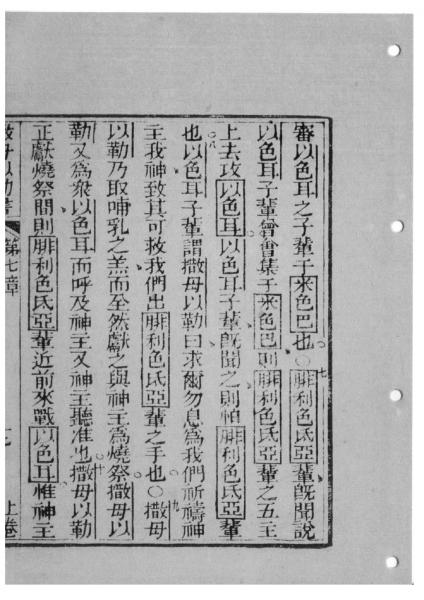 審以色耳之子輩于來色巴也○腓利色氐亞輩既聞說
以色耳子輩曾會集于來色巴則腓利色氐亞輩之五主
上去攻以色耳以色耳子輩既聞之則怕腓利色氐亞輩
也以色耳子輩謂撒母以勒曰求爾勿息為我們祈禱神
主我神致其可救我們出腓利色氐亞輩之手也○撒母
以勒乃取哺乳之羔而至然獻之與神主為燒祭撒母以
勒又為眾以色耳而呼及神主又神主聽准也撒母以勒
正獻燒祭間則腓利色氐亞輩近前來戰以色耳惟神主
撒母以勒書 第七章 上卷